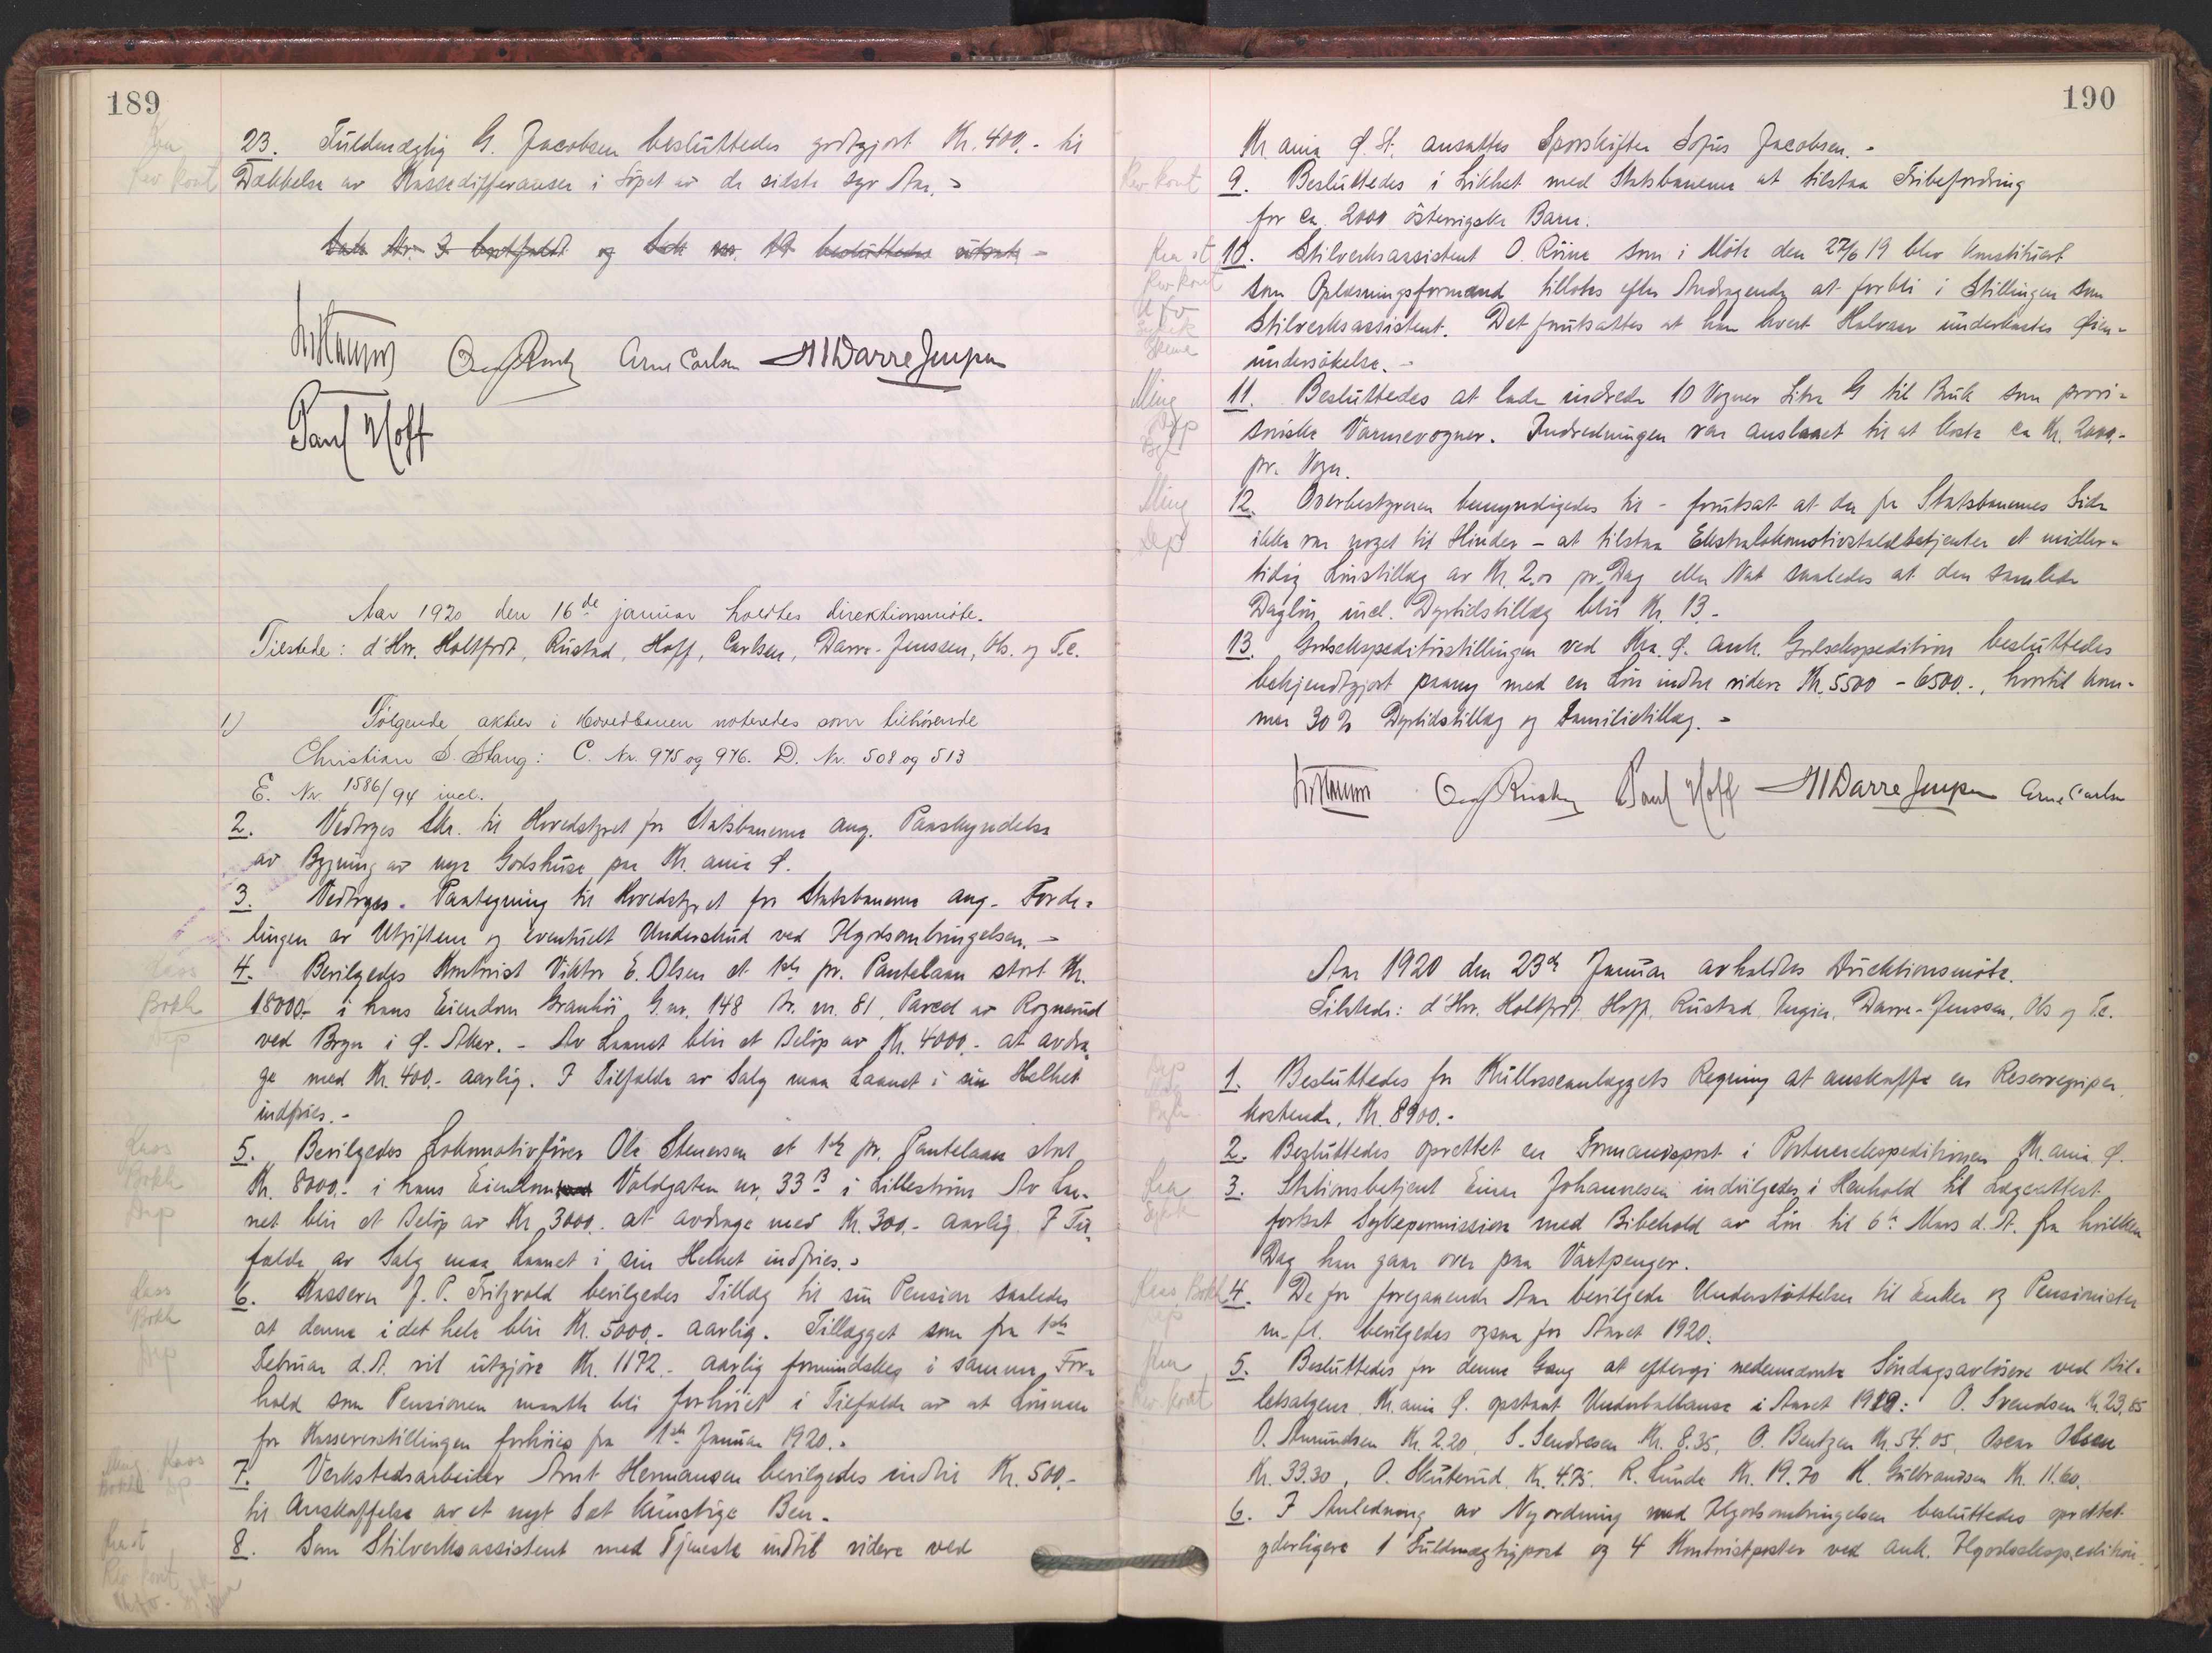 189
23. Fuldmægtig G. Jacobsen besluttedes godtgjort Kr. 400.- til
Dækkelse av Kassedifferanser i Löpet av de sidste syv Aar.-
Sak Nr. 3 bortfaldt og Sak nr. 19 besluttedes utsat -
Paul Hoff Arne Carlsen H Darre Jenssen
Aar 1920 den 16de januar holdtes direktionsmöte.
Tilstede: d'Hrr. Holtfodt, Rustad, Hoff, Carlsen, Darre-Jenssen, Obs. og T.c.
1) Følgende aktier i Hovedbanen noteredes som tilhörende
Christian S. Stang: C. Nr. 975 og 976. D. Nr. 508 og 513
E. Nr 1586/94 incl.
2. Vedtoges Skr. til Hovedstyret for Statsbanerne ang. Paaskyndelse
av Bygning av nye Godshuse paa Kr.ania Ø.
3. Vedtoges Paategning til Hovedstyret for Statsbanerne ang. Forde-
lingen av Utgiftene og eventuelt Underskud ved Ilgodsombringelsen. -
4. Bevilgedes Kontorist Viktor E. Olsen et 1ste pr. Pantelaan stort Kr.
18000.- i hans Eiendom Granhöi G.nr. 148 Br. nr. 81, Parcel av Rognerud
ved Bryn i Ø. Aker. - Av Laanet blir et Belöp av Kr. 4000.- at avdra-
ge med Kr. 400.- aarlig. I Tilfælde av Salg maa Laanet i sin Helhet
indfries.-
5. Bevilgedes Lokomotivförer Ole Stenersen et 1ste pr. Pantelaan stort
Kr. 8000.- i hans Eiendom Voldgaten nr. 33 B i Lilleström Av Laa-
net blir et Belöp av Kr. 3000. at avdrage med Kr. 300.- aarlig. I Til-
fælde av Salg maa Laanet i sin Helhet indfries.-
6. Kasserer J. P. Fritzvold bevilgedes Tillæg til sin Pension saaledes
at denne i det hele blir Kr. 5000.- aarlig. Tillægget som fra 1ste
Februar d.A. vil utgjöre Kr. 1172.- aarlig formindskes i samme For-
hold som Pensionen maatte bli forhöiet i Tilfælde av at Lönnen
for Kassererstillingen forhöies fra 1ste Januar 1920.-
7. Verkstedsarbeider Arnt Hermansen bevilgedes indtil Kr. 500.-
til Anskaffelse av et nyt Sæt kunstige Ben.-
8. Som Stilverksassistent med Tjeneste indtil videre ved
190
Kr.ania Ø. St. ansattes Sporskifter Sofus Jacobsen.-
Rev kont 9. Besluttedes i Likhet med Statsbanerne at tilstaa Fribefordring
for ca. 2000 österrigske Barn.
10. Stilverksassistent O. Röine som i Möte den 27/6 19 blev konstituert
som Oplæsningsformand tillotes efter Andragende at forbli i Stillingen som
Stilverksassistent. Det forutsattes at han hvert Halvaar underkastes Öien-
undersökelse.-
Ming 11. Besluttedes at lade indrede 10 Vogner Litra G til Bruk som provi-
soriske Varmevogner. Indredningen var anslaaet til at koste ca Kr. 2000.-
pr. Vogn.
Ming 12. Overbestyreren bemyndigedes til - forutsat at der fra Statsbanernes Side
Dep ikke var noget til Hinder - at tilstaa Ekstralokomotivstaldbetjenter et midler-
tidig Lönstillæg av Kr. 2.00 pr. Dag eller Nat saaledes at den samlede
Daglön incl. Dyrtidstillæg blir Kr. 13.-
13. Godsekspeditörstillingen ved Kra. Ø. ank. Godsekspedition besluttedes
bekjendtgjort paany med en Lön indtil videre Kr. 5500 - 6500.-, hvortil kom-
mer 30 % Dyrtidstillæg og Familietillæg.-
Paul Hoff H Darre Jenssen Arne Carlsen
Aar 1920 den 23de Januar avholdtes Direktionsmöte.
Tilstede: d'Hrr. Holtfodt, Hoff, Rustad, Dugier, Darre-Jenssen, Obs og T.c.
1. Besluttedes for Kullosseanlæggets Regning at anskaffe en Reservegriper
kostende, Kr. 8900.-
2. Besluttedes oprettet en Formandspost i Portnerekspeditionen Kr.ania Ø.
3. Stationsbetjent Einar Johannesen indvilgedes i Henhold til Lægeattest
fortsat Sykepermission med Bibehold av Lön til 6te Mars d.A. fra hvilken
Dag han gaar over paa Vartpenger.
Kass Bokh 4. De for foregaaende Aar bevilgede Understöttelser til Enker og Pensionister
m. fl. bevilgedes ogsaa for Aaret 1920.
Kra 5. Besluttedes for denne Gang at eftergi nedennævnte Söndagsavlösere ved Bil-
Rev kont letsalgene Kr.ania Ø. opstaat Underballanse i Aaret 1919: O. Svendsen Kr. 23,85
O. Amundsen Kr. 2.20, S. Sendresen Kr. 8.35, O. Bentzen Kr. 54.05, Oscar Olsen
Kr. 33.30, O. Skuterud Kr. 4.75. R. Lunde Kr. 19.70 H. Gulbrandsen Kr. 11.60.
6. I Anledning av Nyordning med Ilgodsombringelsen besluttedes oprettet
yderligere 1 Fuldmægtigpost og 4 Kontoristposter ved ank. Ilgodsekspedition.